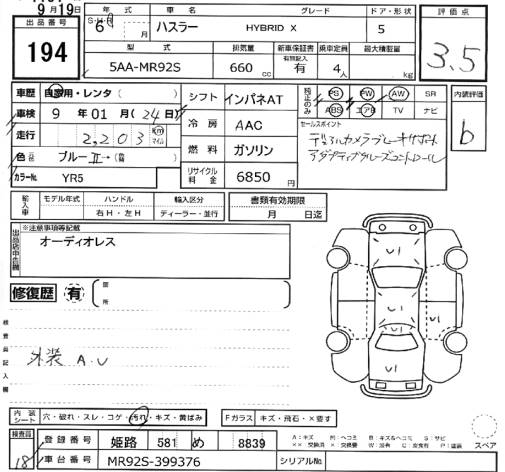 9月19日
出品番号
194
年式
S・H・R
6
月
車名
ハスラー
グレード
HYBRID X
ドア・形状
5
評価点
3.5
型式
5AA-MR92S
排気量
660
cc
新車保証書
有無記入
有
乗車定員
4
人
最大積載量
kg
車歴
自家用・レンタ ( )
車検
9 年 01 月 ( 24 日 )
走行
2,203
km
マイル
色
ブルーⅡ→(替 )
カラーNo.
YR5
シフト
インパネAT
冷房
AAC
燃料
ガソリン
リサイクル料金
6850
円
PS PW AW SR
ABS エアB TV ナビ
セールスポイント
デュアルカメラブレーキサポート
アダプティブクルーズコントロール
内装評価
b
輸入車
モデル年式
ハンドル
右H・左H
輸入区分
ディーラー・並行
書類有効期限
月 日迄
出品店申告欄
※注意事項等記載
オーディオレス
修復歴
有
箇所
検査員記入欄
外装 A.U
U1
U1
U1
U1
内装シート
穴・破れ・スレ・コゲ・汚れ・キズ・黄ばみ
Fガラス
キズ・飛石・×要す
検査員
18
登録番号
姫路 581 め 8839
車台番号
MR92S-399376
シリアルNo.
A：キズ M：ヘコミ B：キズ&ヘコミ S：サビ
××：交換済 ×：交換要 W：波有 C：腐食有 P：塗装
スペア